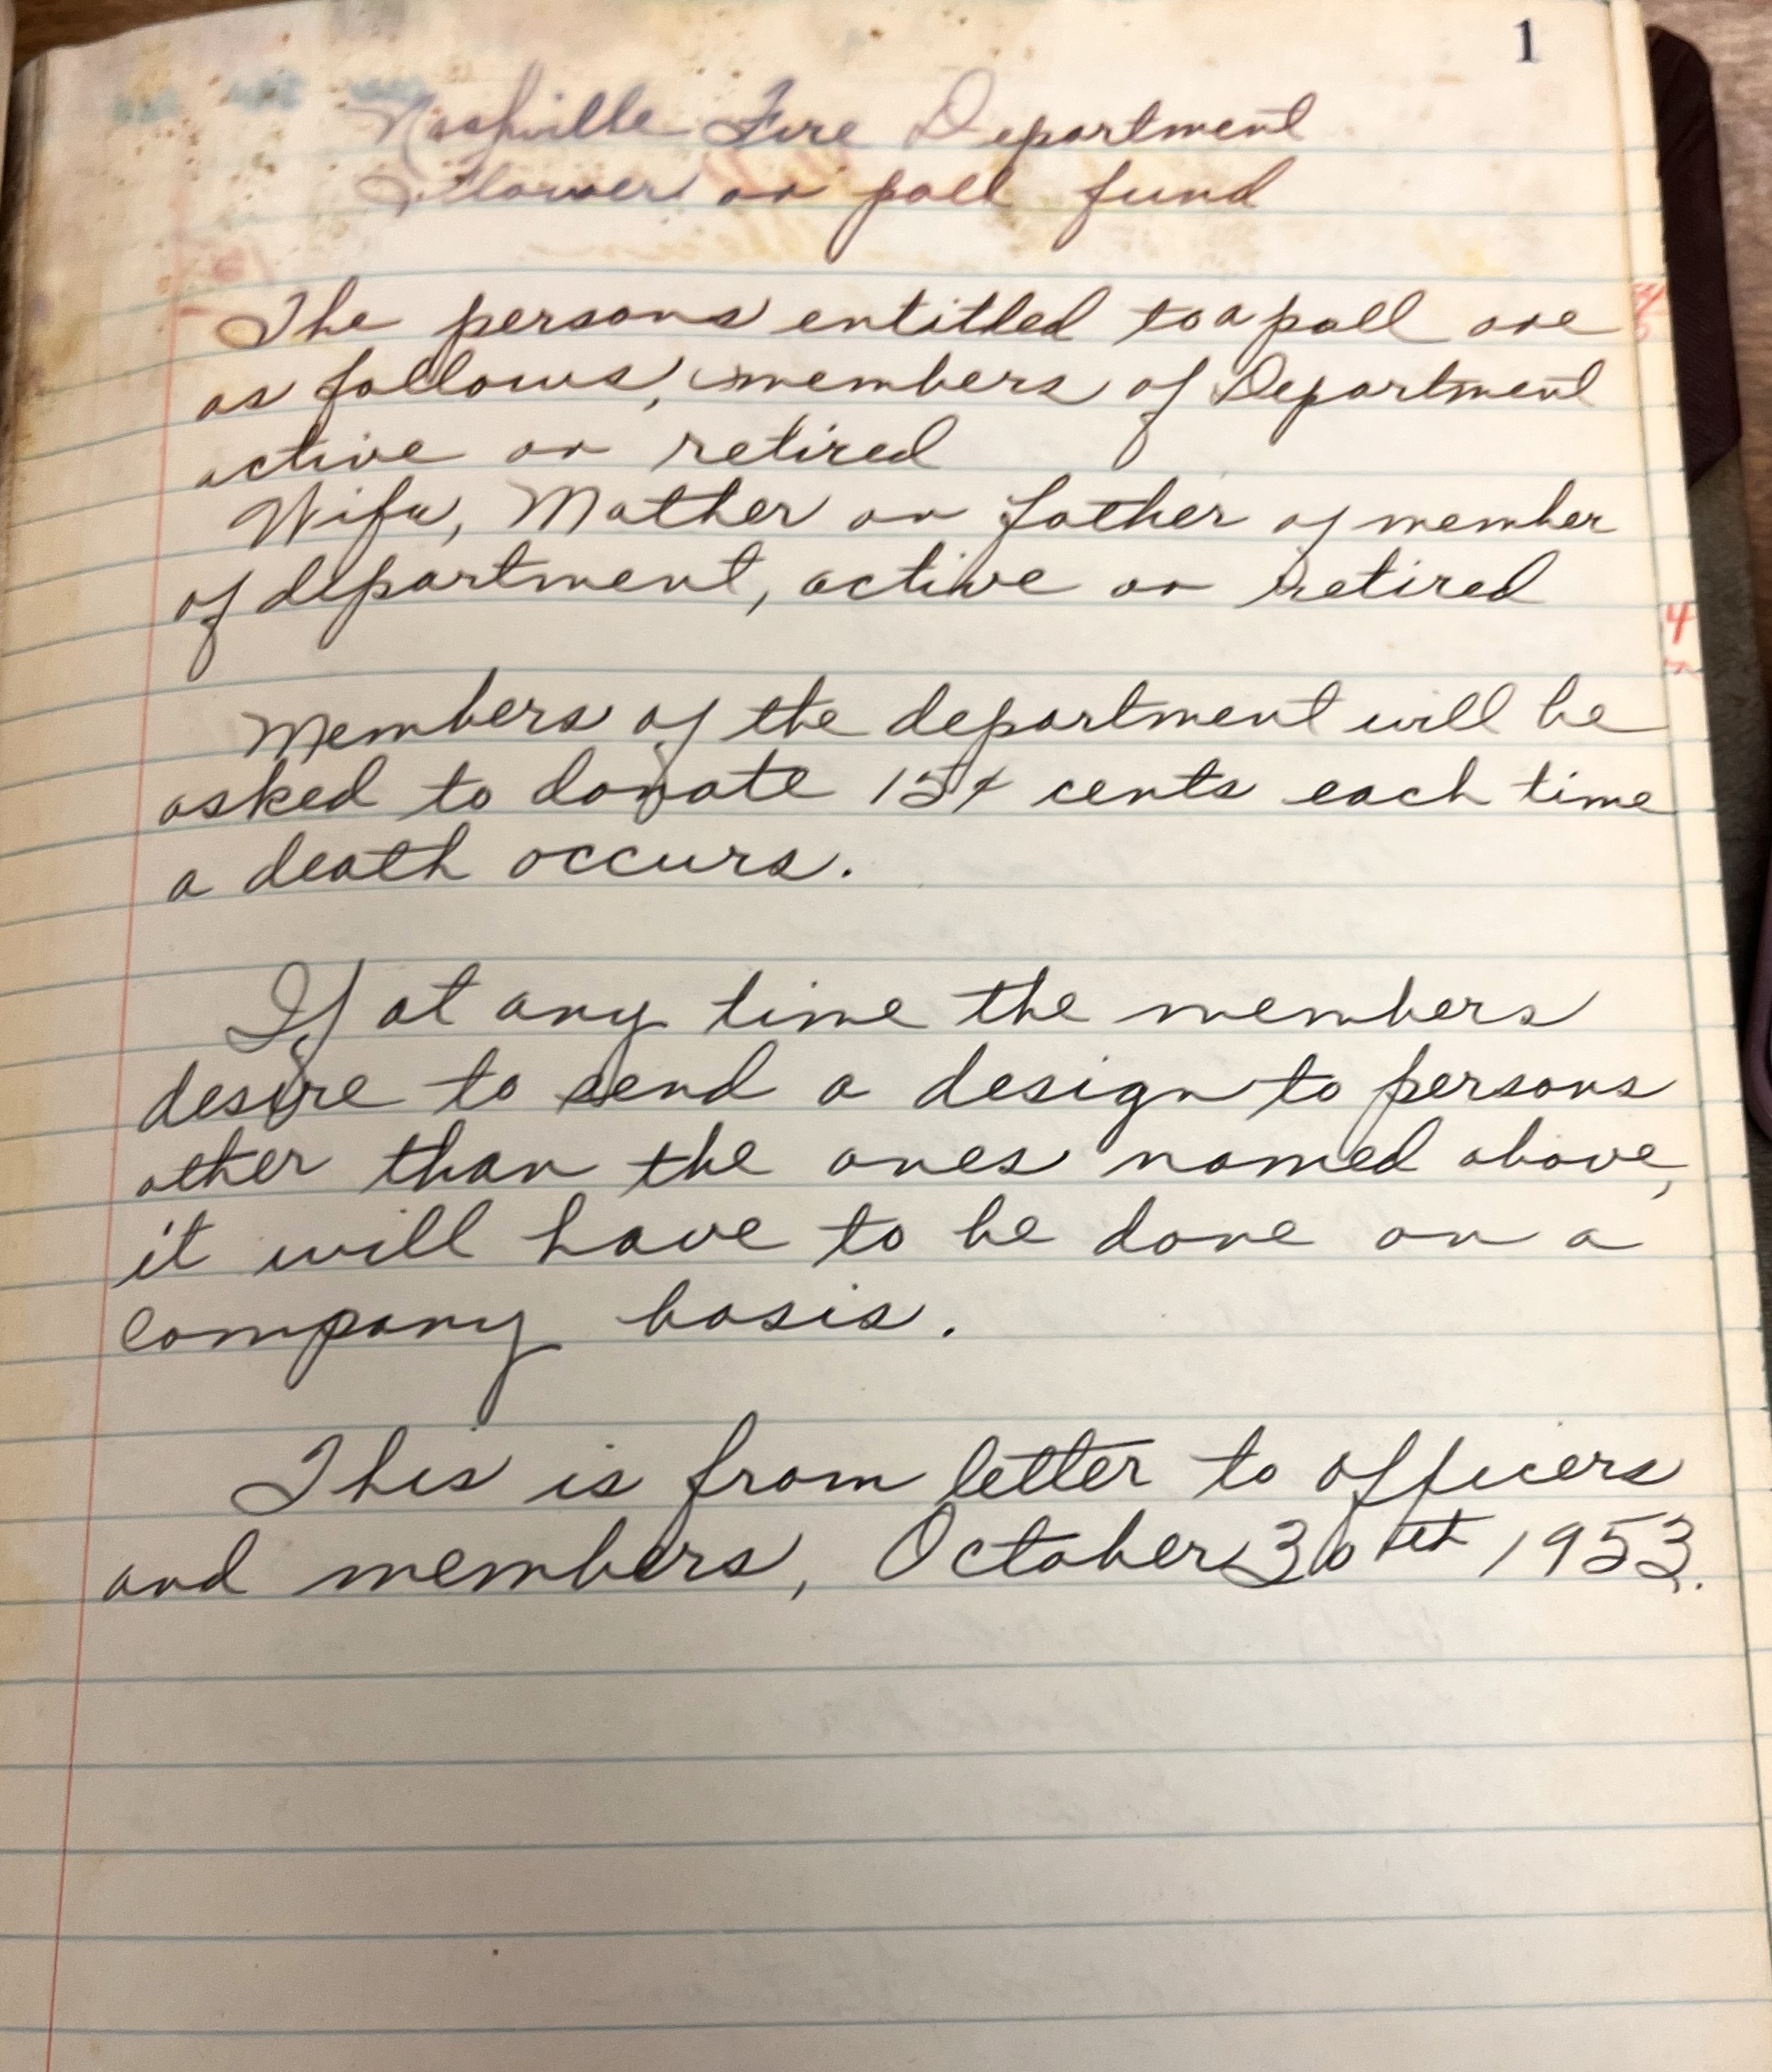 1
Nashville Fire Department
Flower or pall fund
The persons entitled to a pall are
as follows, members of Department
active or retired
Wife, Mother or father of member
of department, active or retired
Members of the department will be
asked to donate 15¢ cents each time
a death occurs.
If at any time the members
desire to send a design to persons
other than the ones named above,
it will have to be done on a
company basis.
This is from letter to officers
and members, October 30th 1953.
4